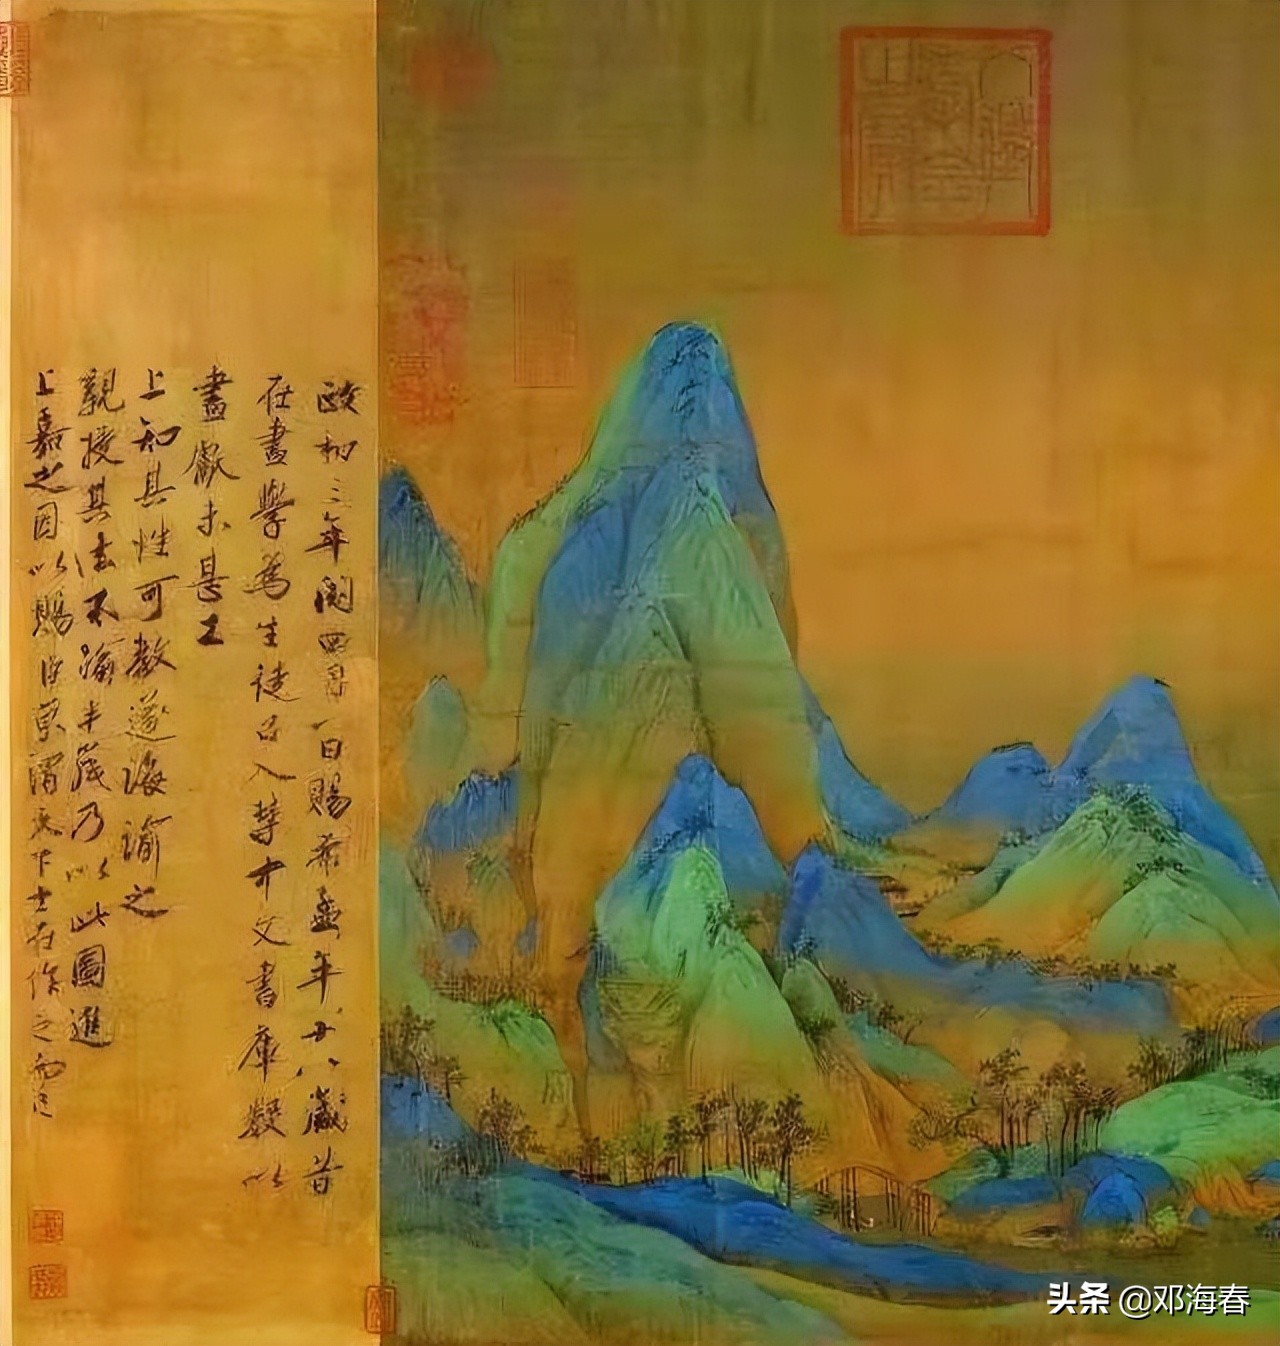 政和三年閏四月一日賜希孟年十八歲昔
在畫學為生徒召入禁中文書庫數以
畫獻未甚工
上知其性可教遂誨諭之
親授其法不踰半歲乃以此圖進
上嘉之因以賜臣京謂天下士在作之而已
头条 @邓海春